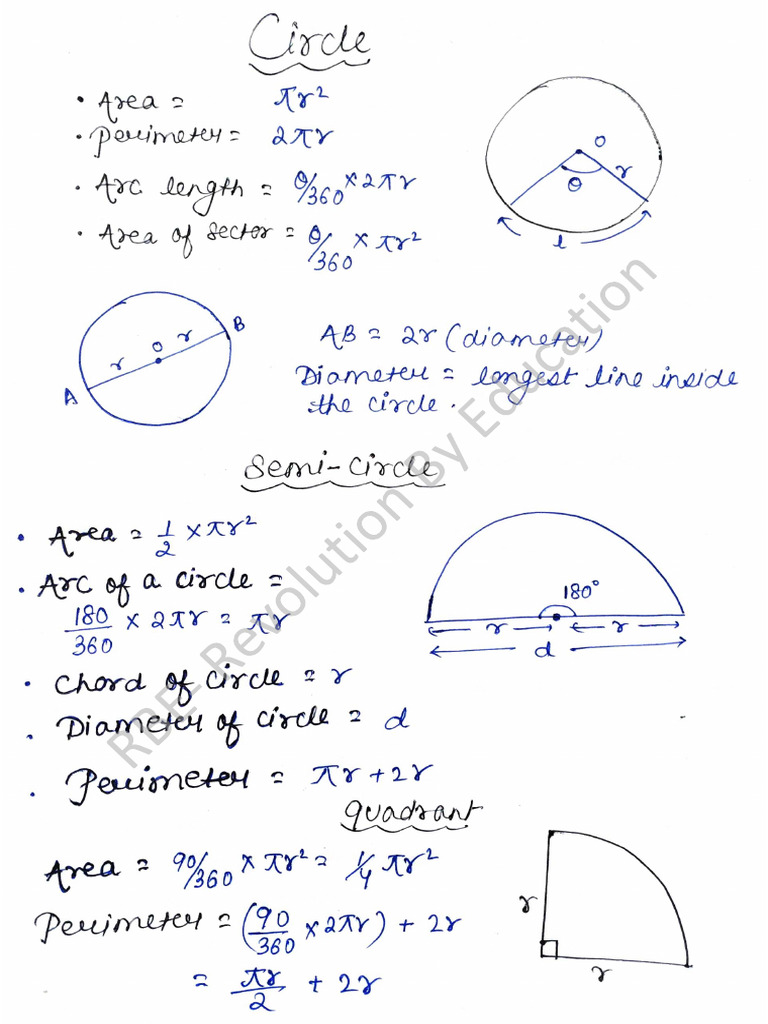 Circle
• Area = πr²
• Perimeter = 2πr
• Arc length = θ/360 × 2πr
• Area of sector = θ/360 × πr²
O
r
θ
l
A
r
O
r
B
AB = 2r (diameter)
Diameter = longest line inside
the circle.
Semi-Circle
• Area = 1/2 × πr²
• Arc of a circle =
180/360 × 2πr = πr
• Chord of circle = r
• Diameter of circle = d
• Perimeter = πr + 2r
180°
r
r
d
quadrant
Area = 90/360 × πr² = 1/4 πr²
Perimeter = (90/360 × 2πr) + 2r
= πr/2 + 2r
r
r
RBE- Revolution By Education